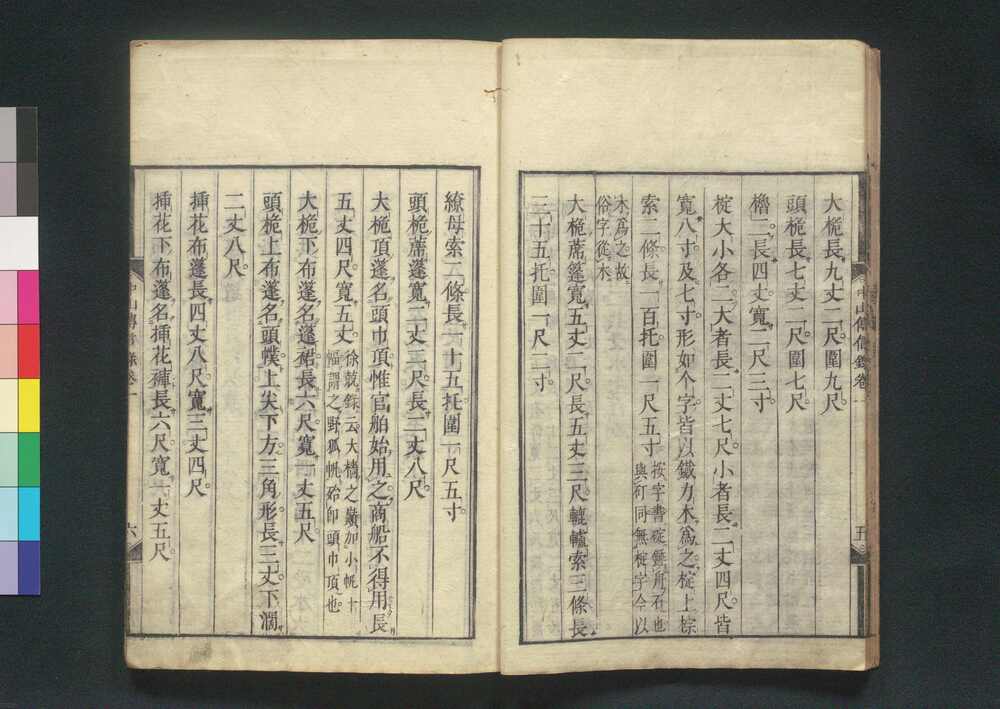 大桅長九丈二尺圍九尺
頭桅長七丈二尺圍七尺
櫓二長四丈寬二尺三寸
椗大小各二大者長二丈七尺小者長二丈四尺皆
寬八寸及七寸形如个字皆以鐵力木爲之椗上棕
索二條長一百托圍一尺五寸
按字書碇錘舟石也
與矴同無椗字今以
木爲之故
俗字從木
大桅蓆篷寬五丈二尺長五丈三尺轆轤索三條長
三十五托圍一尺二寸
繚母索二條長一十五托圍一尺五寸
頭桅蓆蓬寬二丈二尺長二丈八尺
大桅頂蓬名頭巾頂惟官舶始用之商船不得用長
五丈四尺寬五丈
徐兢錄云大檣之巔加小帆十
幅謂之野狐帆殆卽頭巾頂也
大桅下布蓬名蓬裙長六尺寬一丈五尺
頭桅上布蓬名頭幞上尖下方三角形長三丈下濶
二丈八尺
揷花布蓬長四丈八尺寬三丈四尺
揷花下布蓬名揷花褲長六尺寬一丈五尺
中山傳信錄卷一
五
中山傳信錄卷一
六